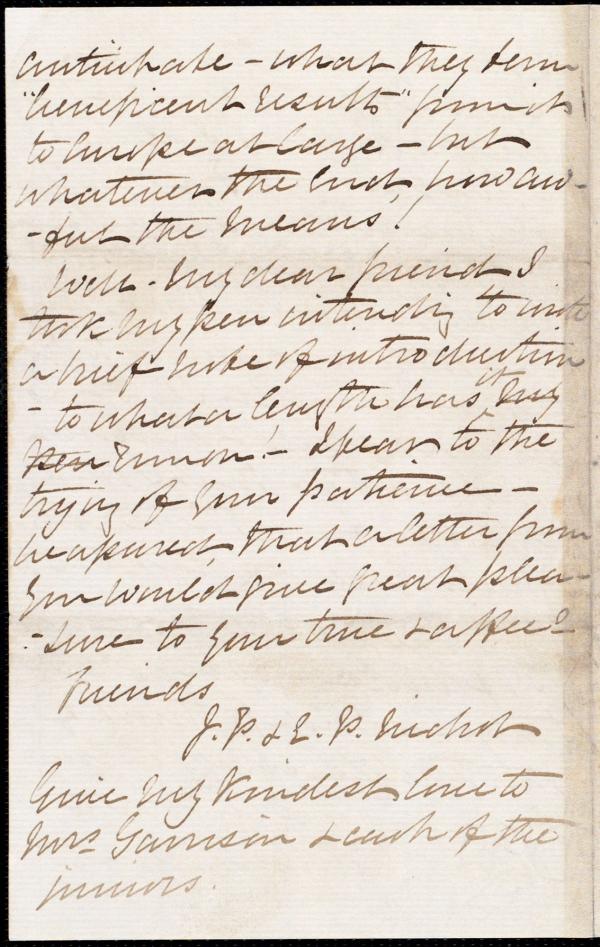 anticipate - what they term
"beneficent results" from it
to Europe at large - but
whatever the end, how aw-
-ful the means!
Well - my dear friend I
took my pen intending to write
a brief note of introduction
- to what a length has it my
pen run on! - I fear to the
trying of your patience -
be assured, that a letter from
you would give great plea-
-sure to your true & affec.
friends
J. P. & E. P. Nichol
Give my kindest love to
Mrs Garrison & each of the
juniors.